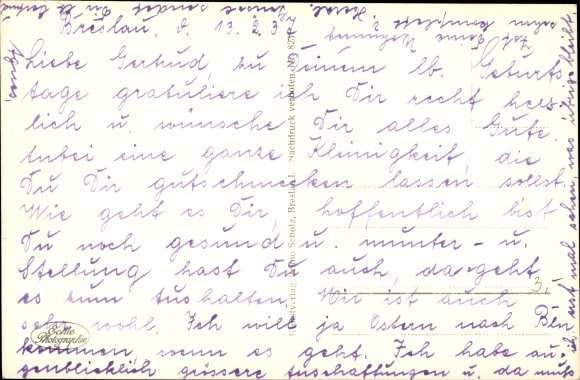 Breslau, d. 13.2.3
Liebe Gertrud, zu Deinem lb. Geburts
tage gratuliere ich Dir recht herz
lich u. wünsche Dir alles Gute.
anbei eine ganze Kleinigkeit, die
Du Dir gutschmecken lassen sollst.
Wie geht es Dir, hoffentlich bist
Du noch gesund u. munter - u.
Stellung hast Du auch, da geht
es zum aushalten. Mir ist auch
sehr wohl. Ich will ja Ostern nach Bln
kommen, wenn es geht. Ich habe au-
genblicklich grössere Anschaffungen u. da muss
ich erst mal sehen, was übrig bleibt
Scholz, Breslau I. Nachdruck verboten. No.
Echte
Photographie